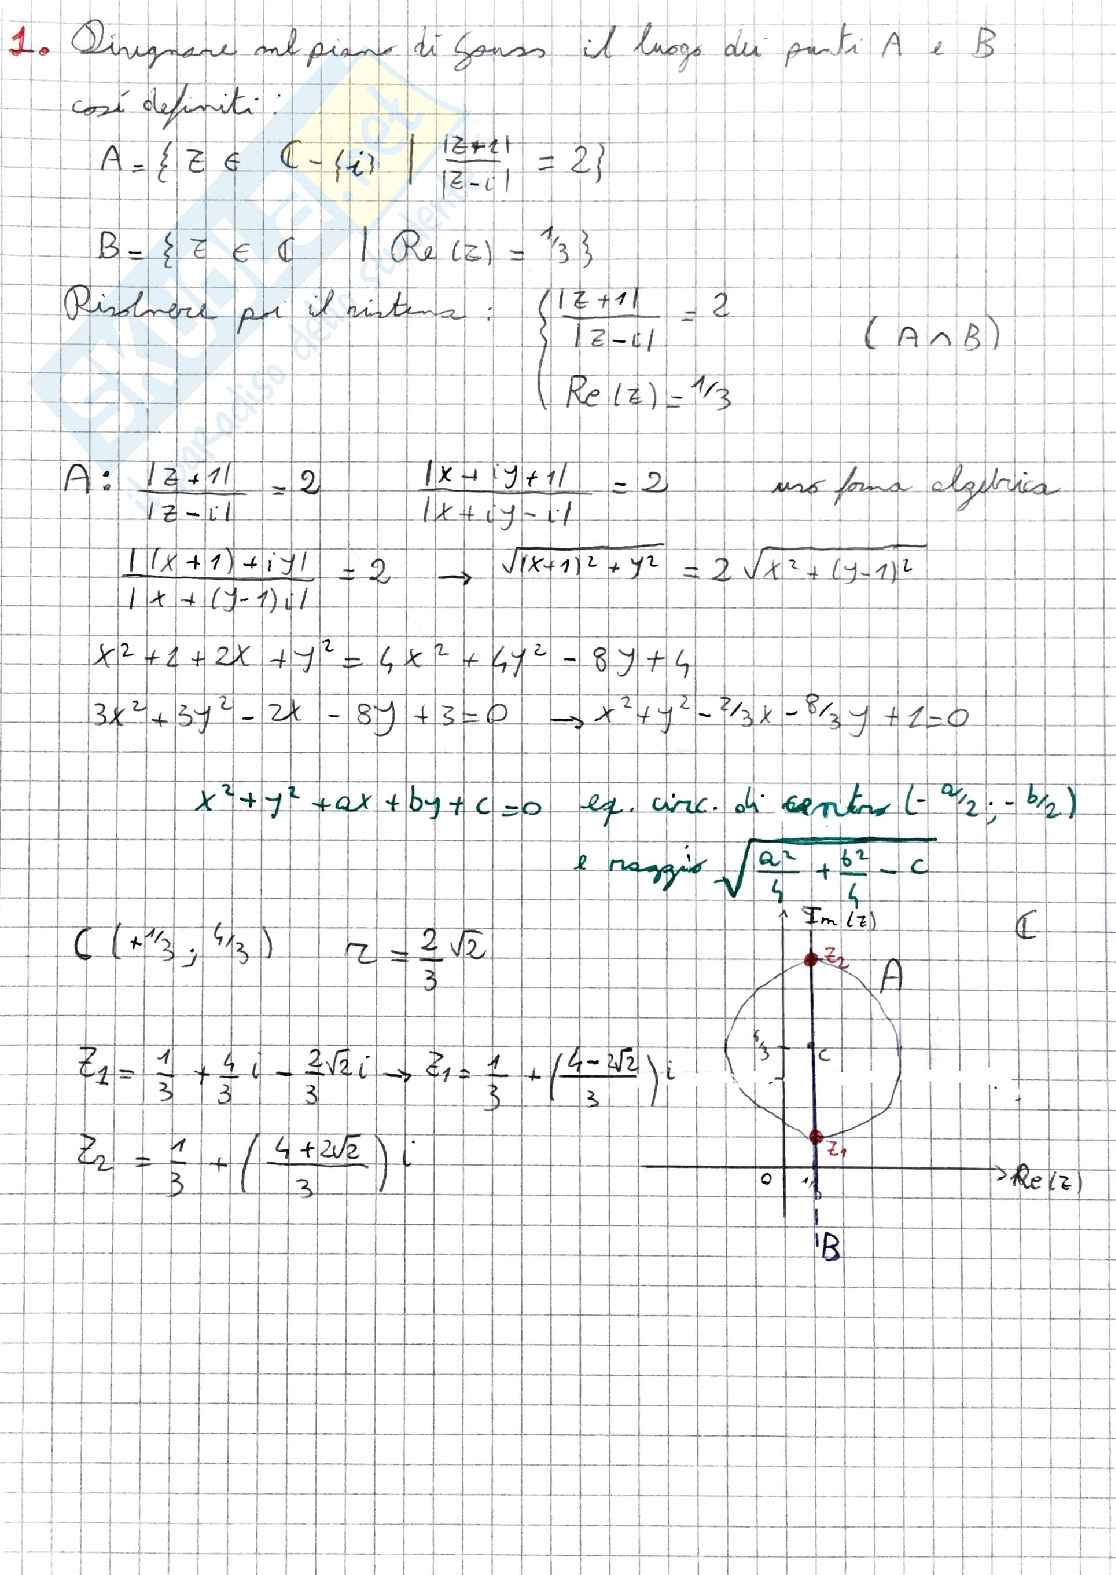 1. Disegnare sul piano di Gauss il luogo dei punti A e B
così definiti:
A = { z ∈ ℂ - {i} | |z+1| / |z-i| = 2}
B = { z ∈ ℂ | Re(z) = 1/3 }
Risolvere poi il sistema: { |z+1| / |z-i| = 2
(A ∩ B)
Re(z) = 1/3
A: |z+1| / |z-i| = 2 |x+iy+1| / |x+iy-i| = 2 uso forma algebrica
|(x+1)+iy| / |x+(y-1)i| = 2 → √((x+1)² + y²) = 2 √(x² + (y-1)²)
x² + 1 + 2x + y² = 4x² + 4y² - 8y + 4
3x² + 3y² - 2x - 8y + 3 = 0 → x² + y² - 2/3 x - 8/3 y + 1 = 0
x² + y² + ax + by + c = 0 eq. circ. di centro (-a/2 ; -b/2)
e raggio √(a²/4 + b²/4 - c)
C (+1/3 ; 4/3) r = 2/3 √2
z₁ = 1/3 + 4/3 i - 2/3 √2 i → z₁ = 1/3 + ((4-2√2)/3) i
z₂ = 1/3 + ((4+2√2)/3) i
Im(z)
ℂ
z₂
A
4/3
c
z₁
0
Re(z)
B
SKUOLA.net
il paradiso dello studente